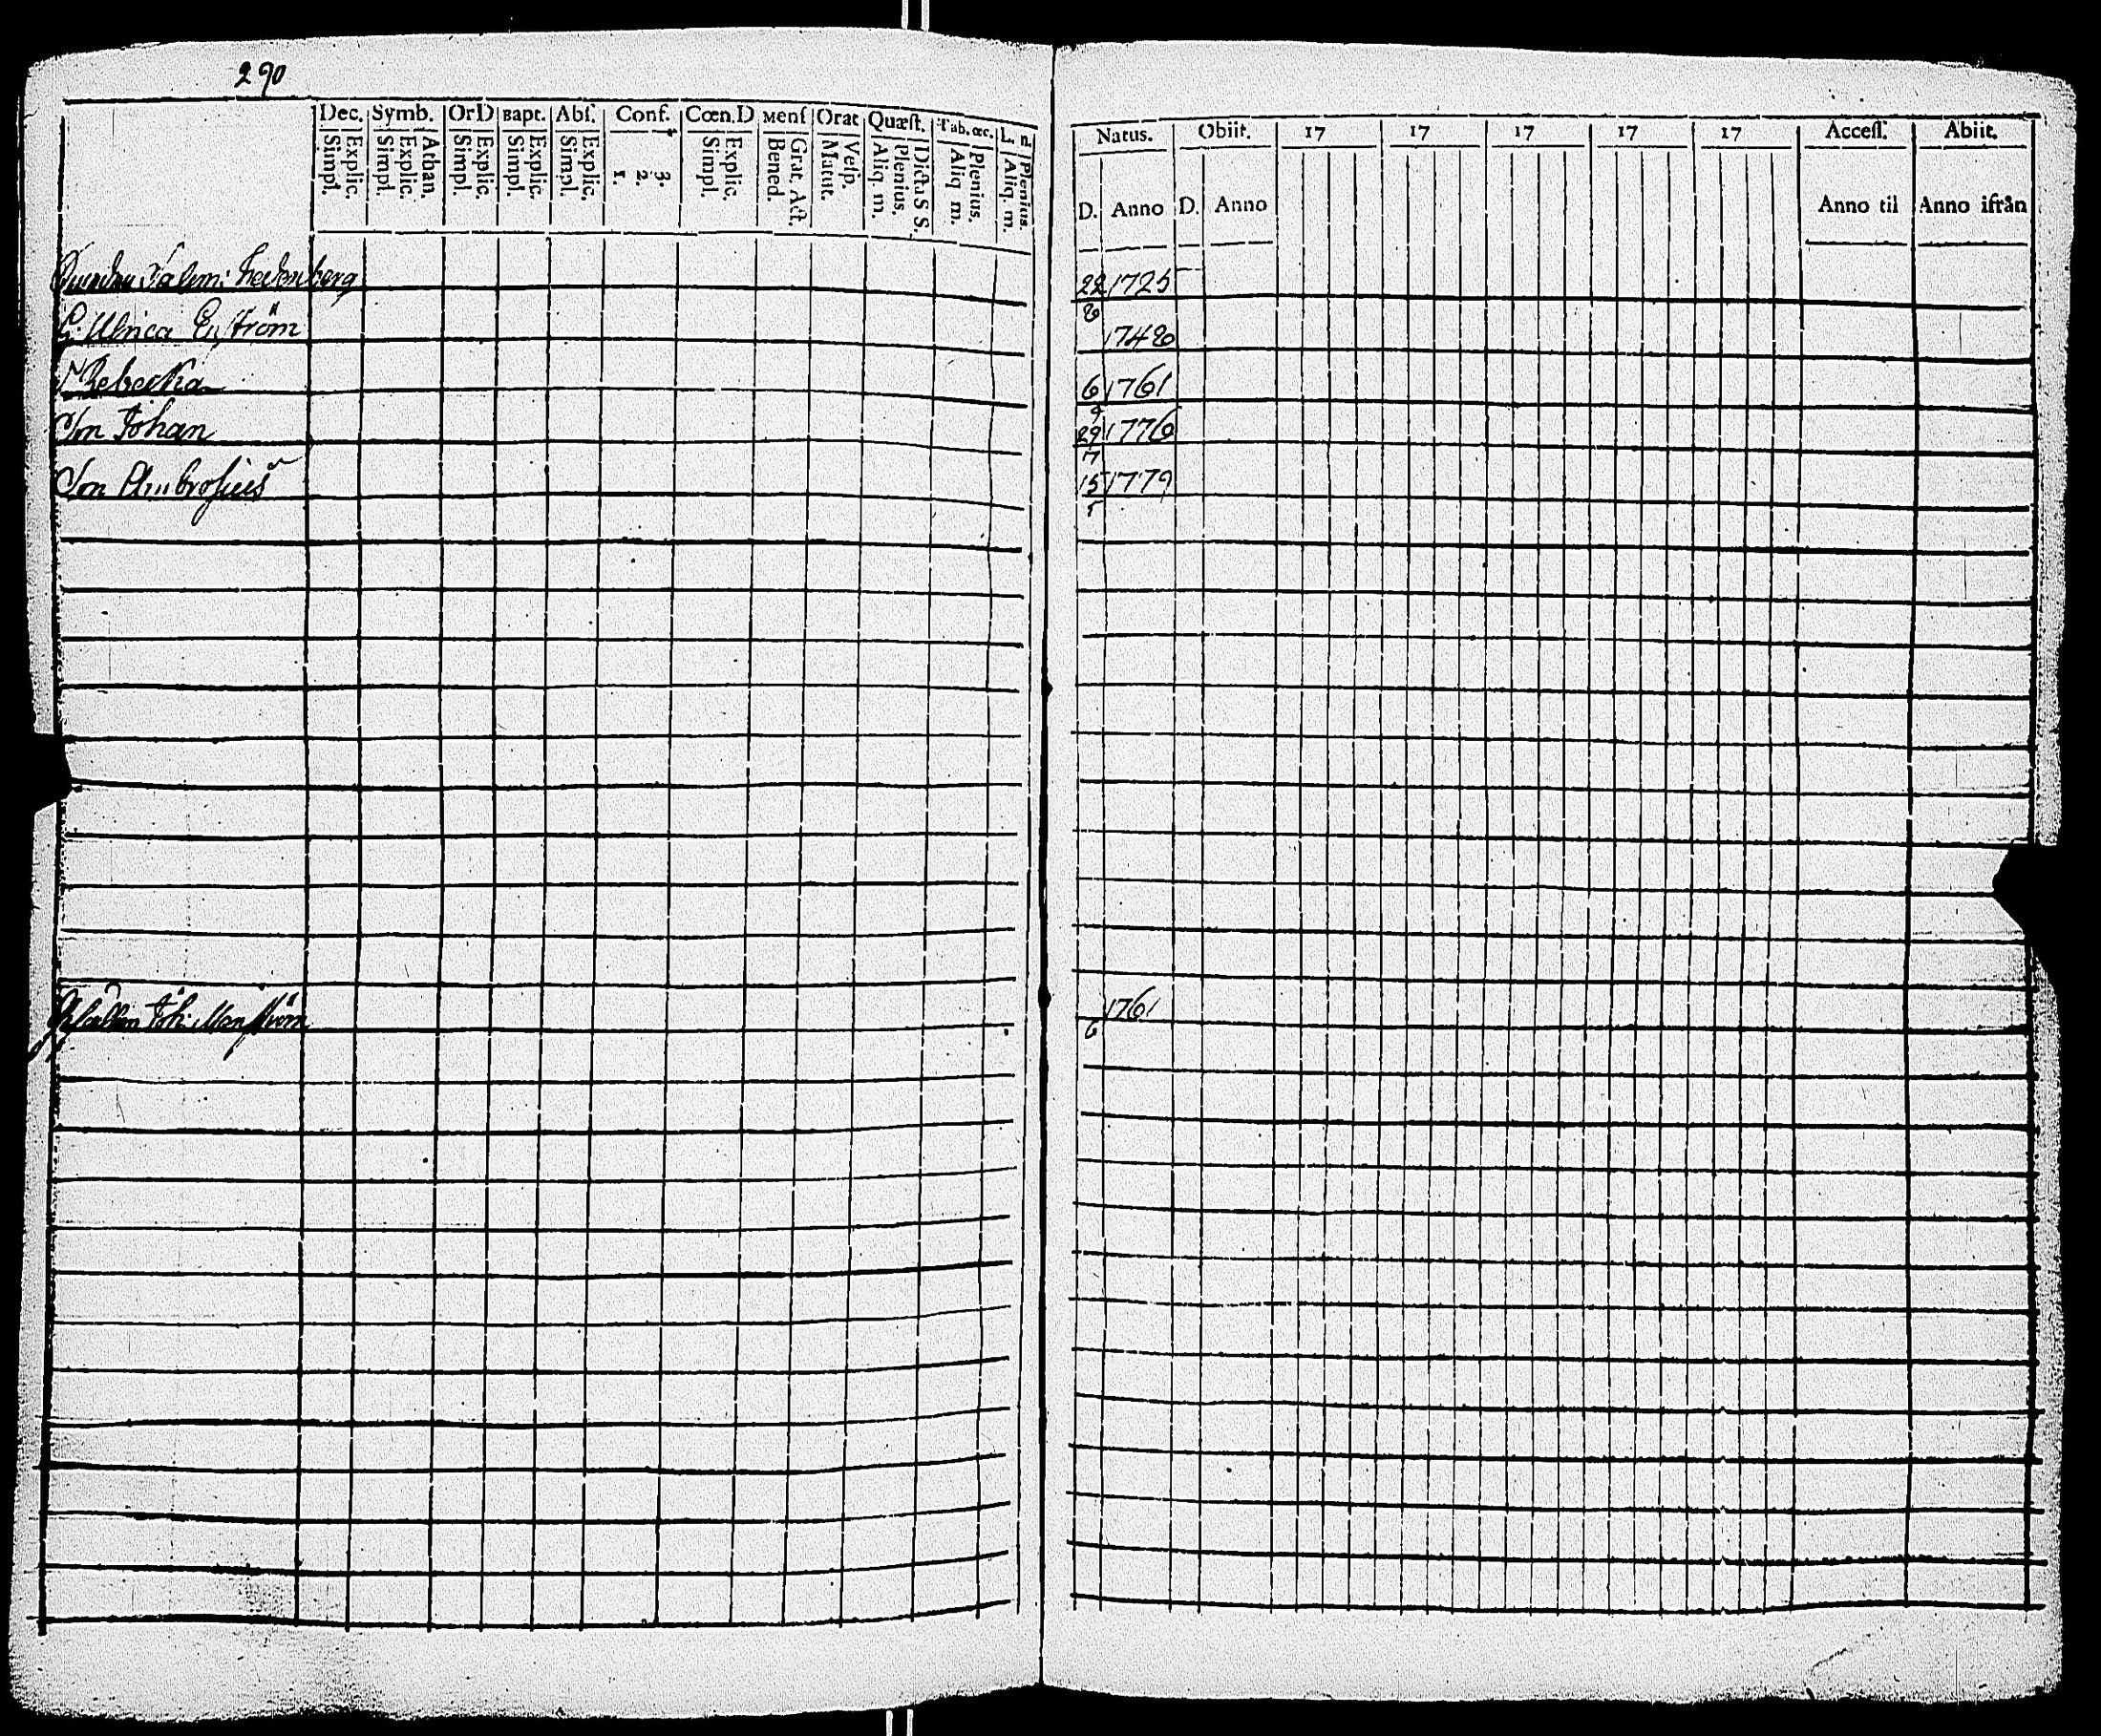 290
Dec. Symb. OrD Bapt. Abſ. Conf. Cœn.D Menſ Orat Quæſt. Tab. œc.
Simpl. Explic. Simpl. Explic. Athan. Simpl. Explic. Simpl. Explic. Simpl Explic. 1. 2. 3. Simpl. Explic. Bened. Grat. Act. Matut. Veſp. Aliq. m. Plenius. Dicta S S. Aliq m. Plenius. Aliq. m. Plenius.
Natus. Obiit. 17 17 17 17 17 Acceſſ. Abiit.
D. Anno D. Anno Anno til Anno ifrån
22/8 1725
Ulrica 1748
Rebecka 6/9 1761
Son Johan 29/7 1776
Son Ambrosius 15/5 1779
Joh: 6 1761